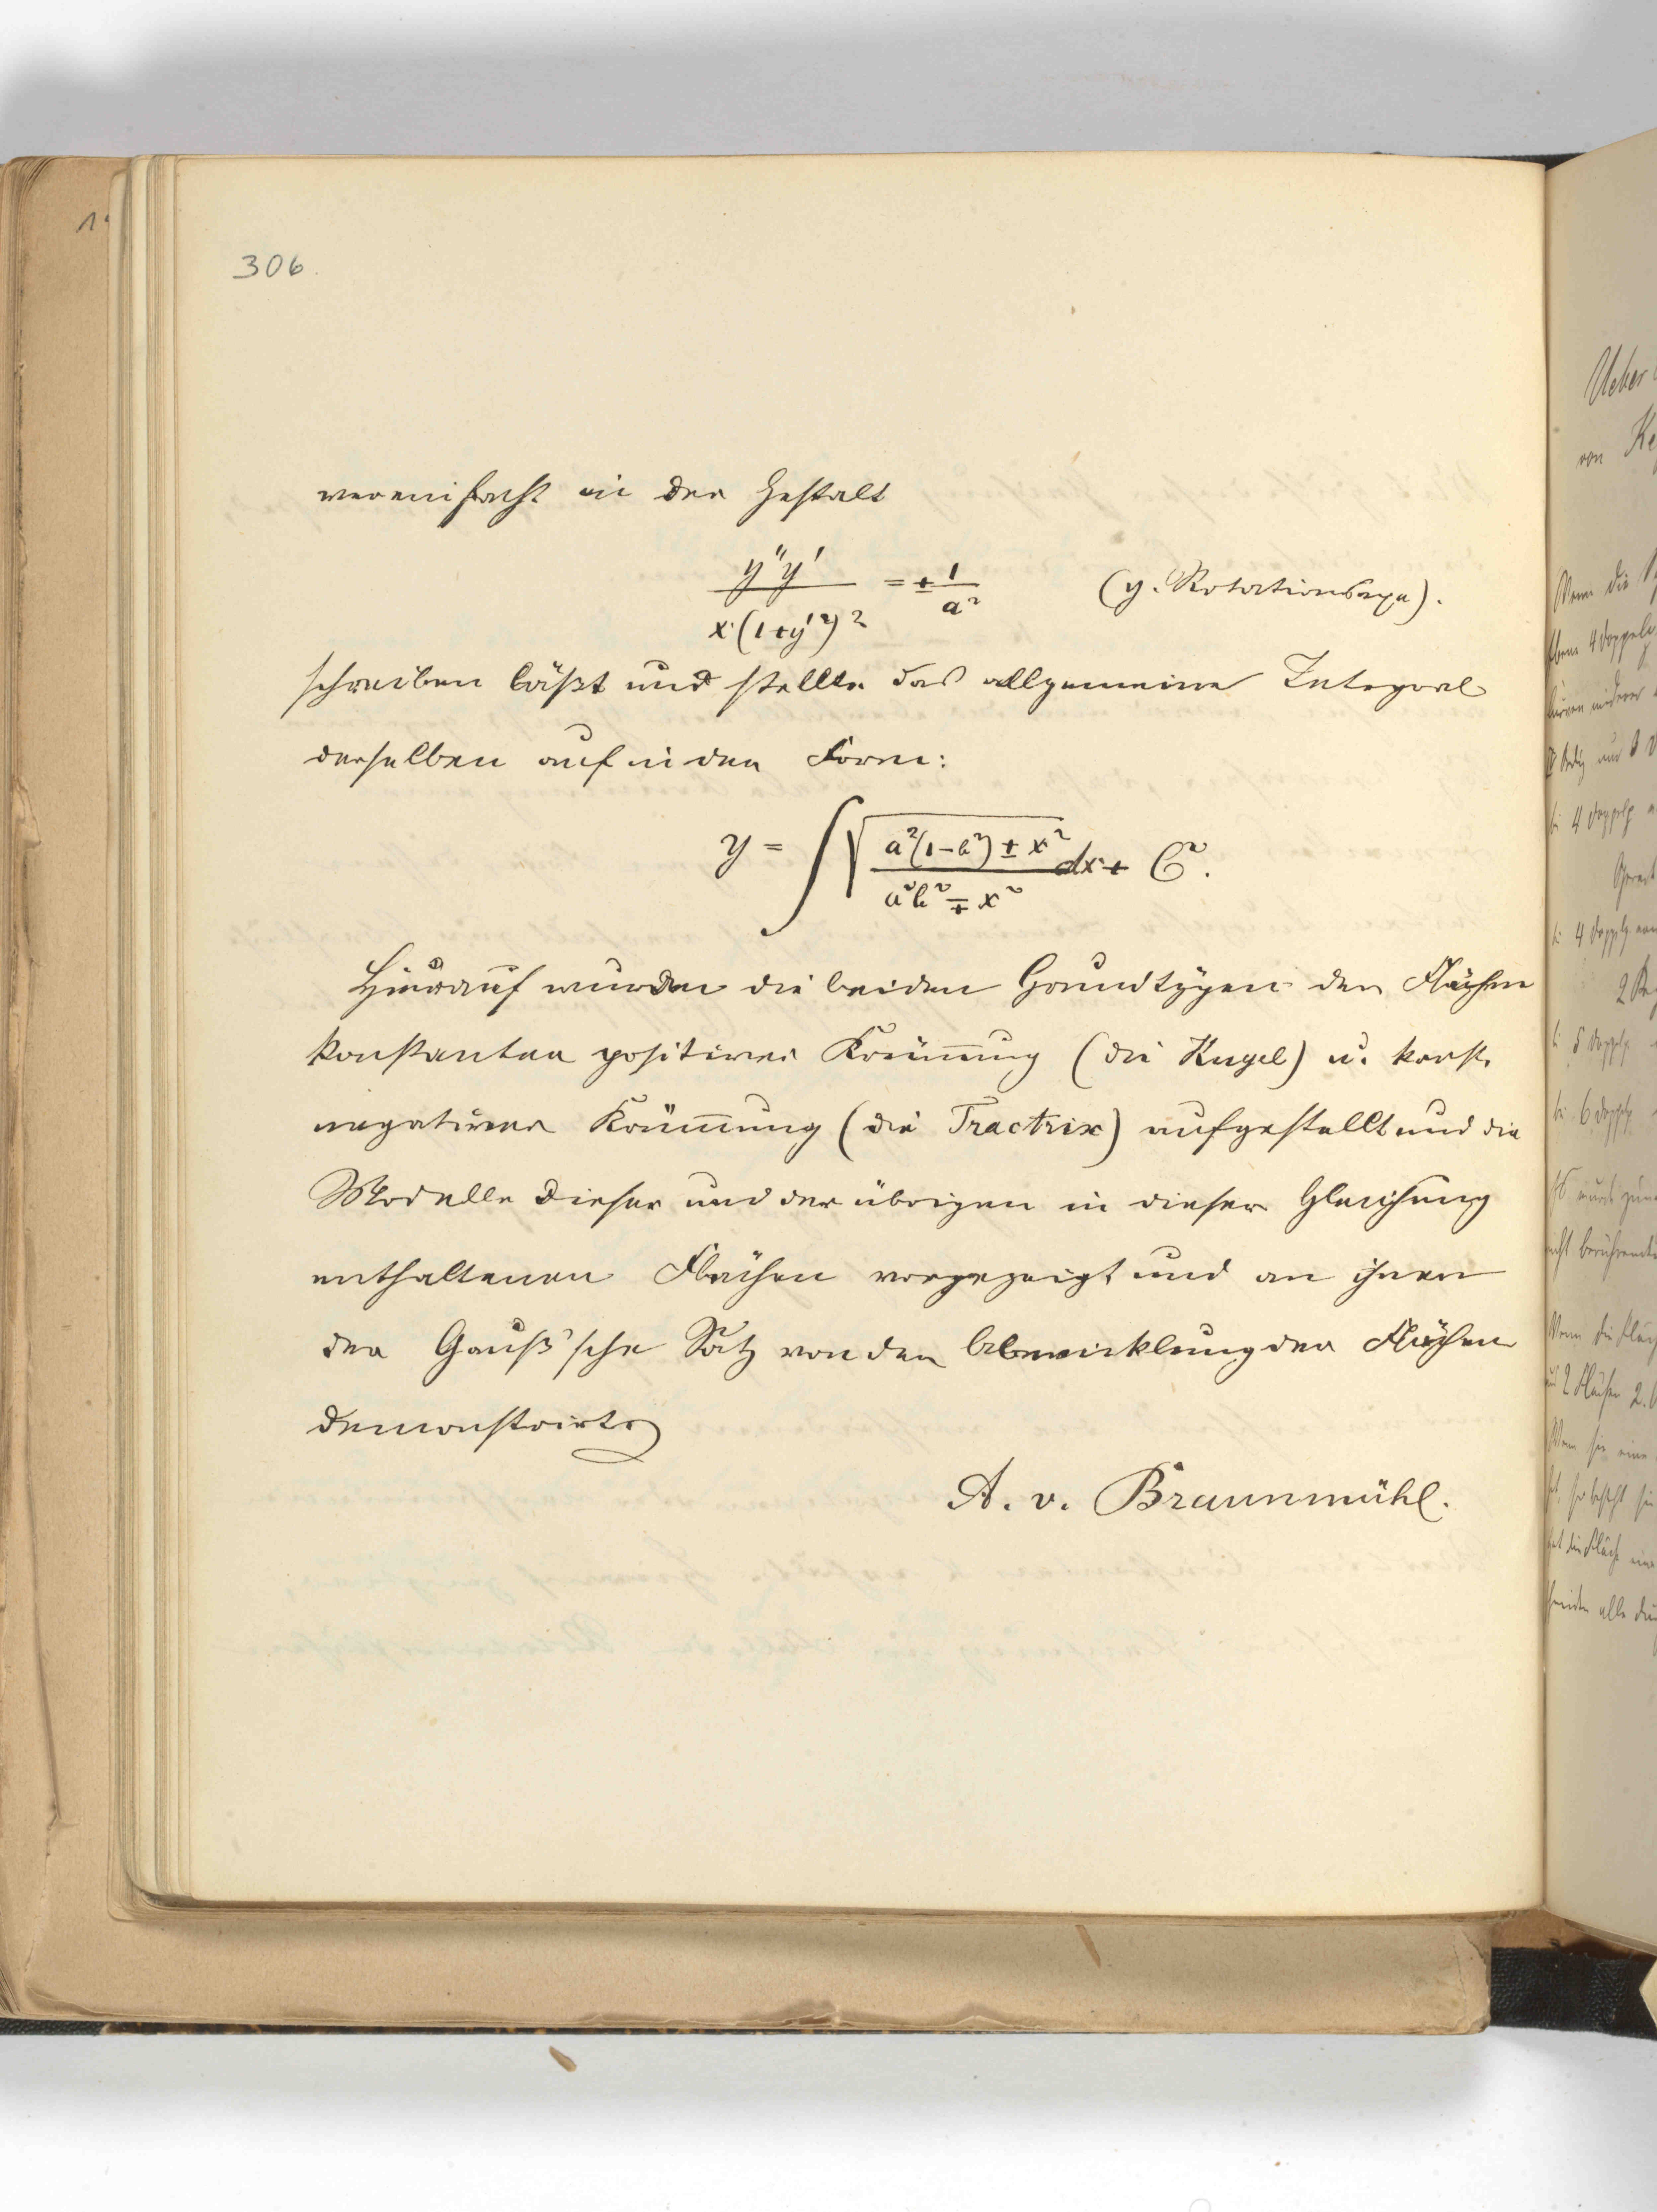 306.
vereinfacht in der Gestalt
y''y' / x·(1+y'²)² = ± 1/a² (y. Rotationsaxe).
schreiben läßt und stellte das allgemeine Integral
derselben auf in der Form:
y = ∫ √( a²(1-b²) ± x² / a²b² ∓ x² ) dx + C.
Hierauf wurden die beiden Grundtypen der Flächen
konstanter positiver Krümmung (die Kugel) u. konst.
negativer Krümmung (die Tractrix) aufgestellt und die
Modelle dieser und der übrigen in dieser Gleichung
enthaltenen Flächen vorgezeigt und an ihnen
der Gauß'sche Satz von der Abwicklung der Flächen
demonstrirt.
A. v. Braunmühl.
Ueber
von
Wenn die